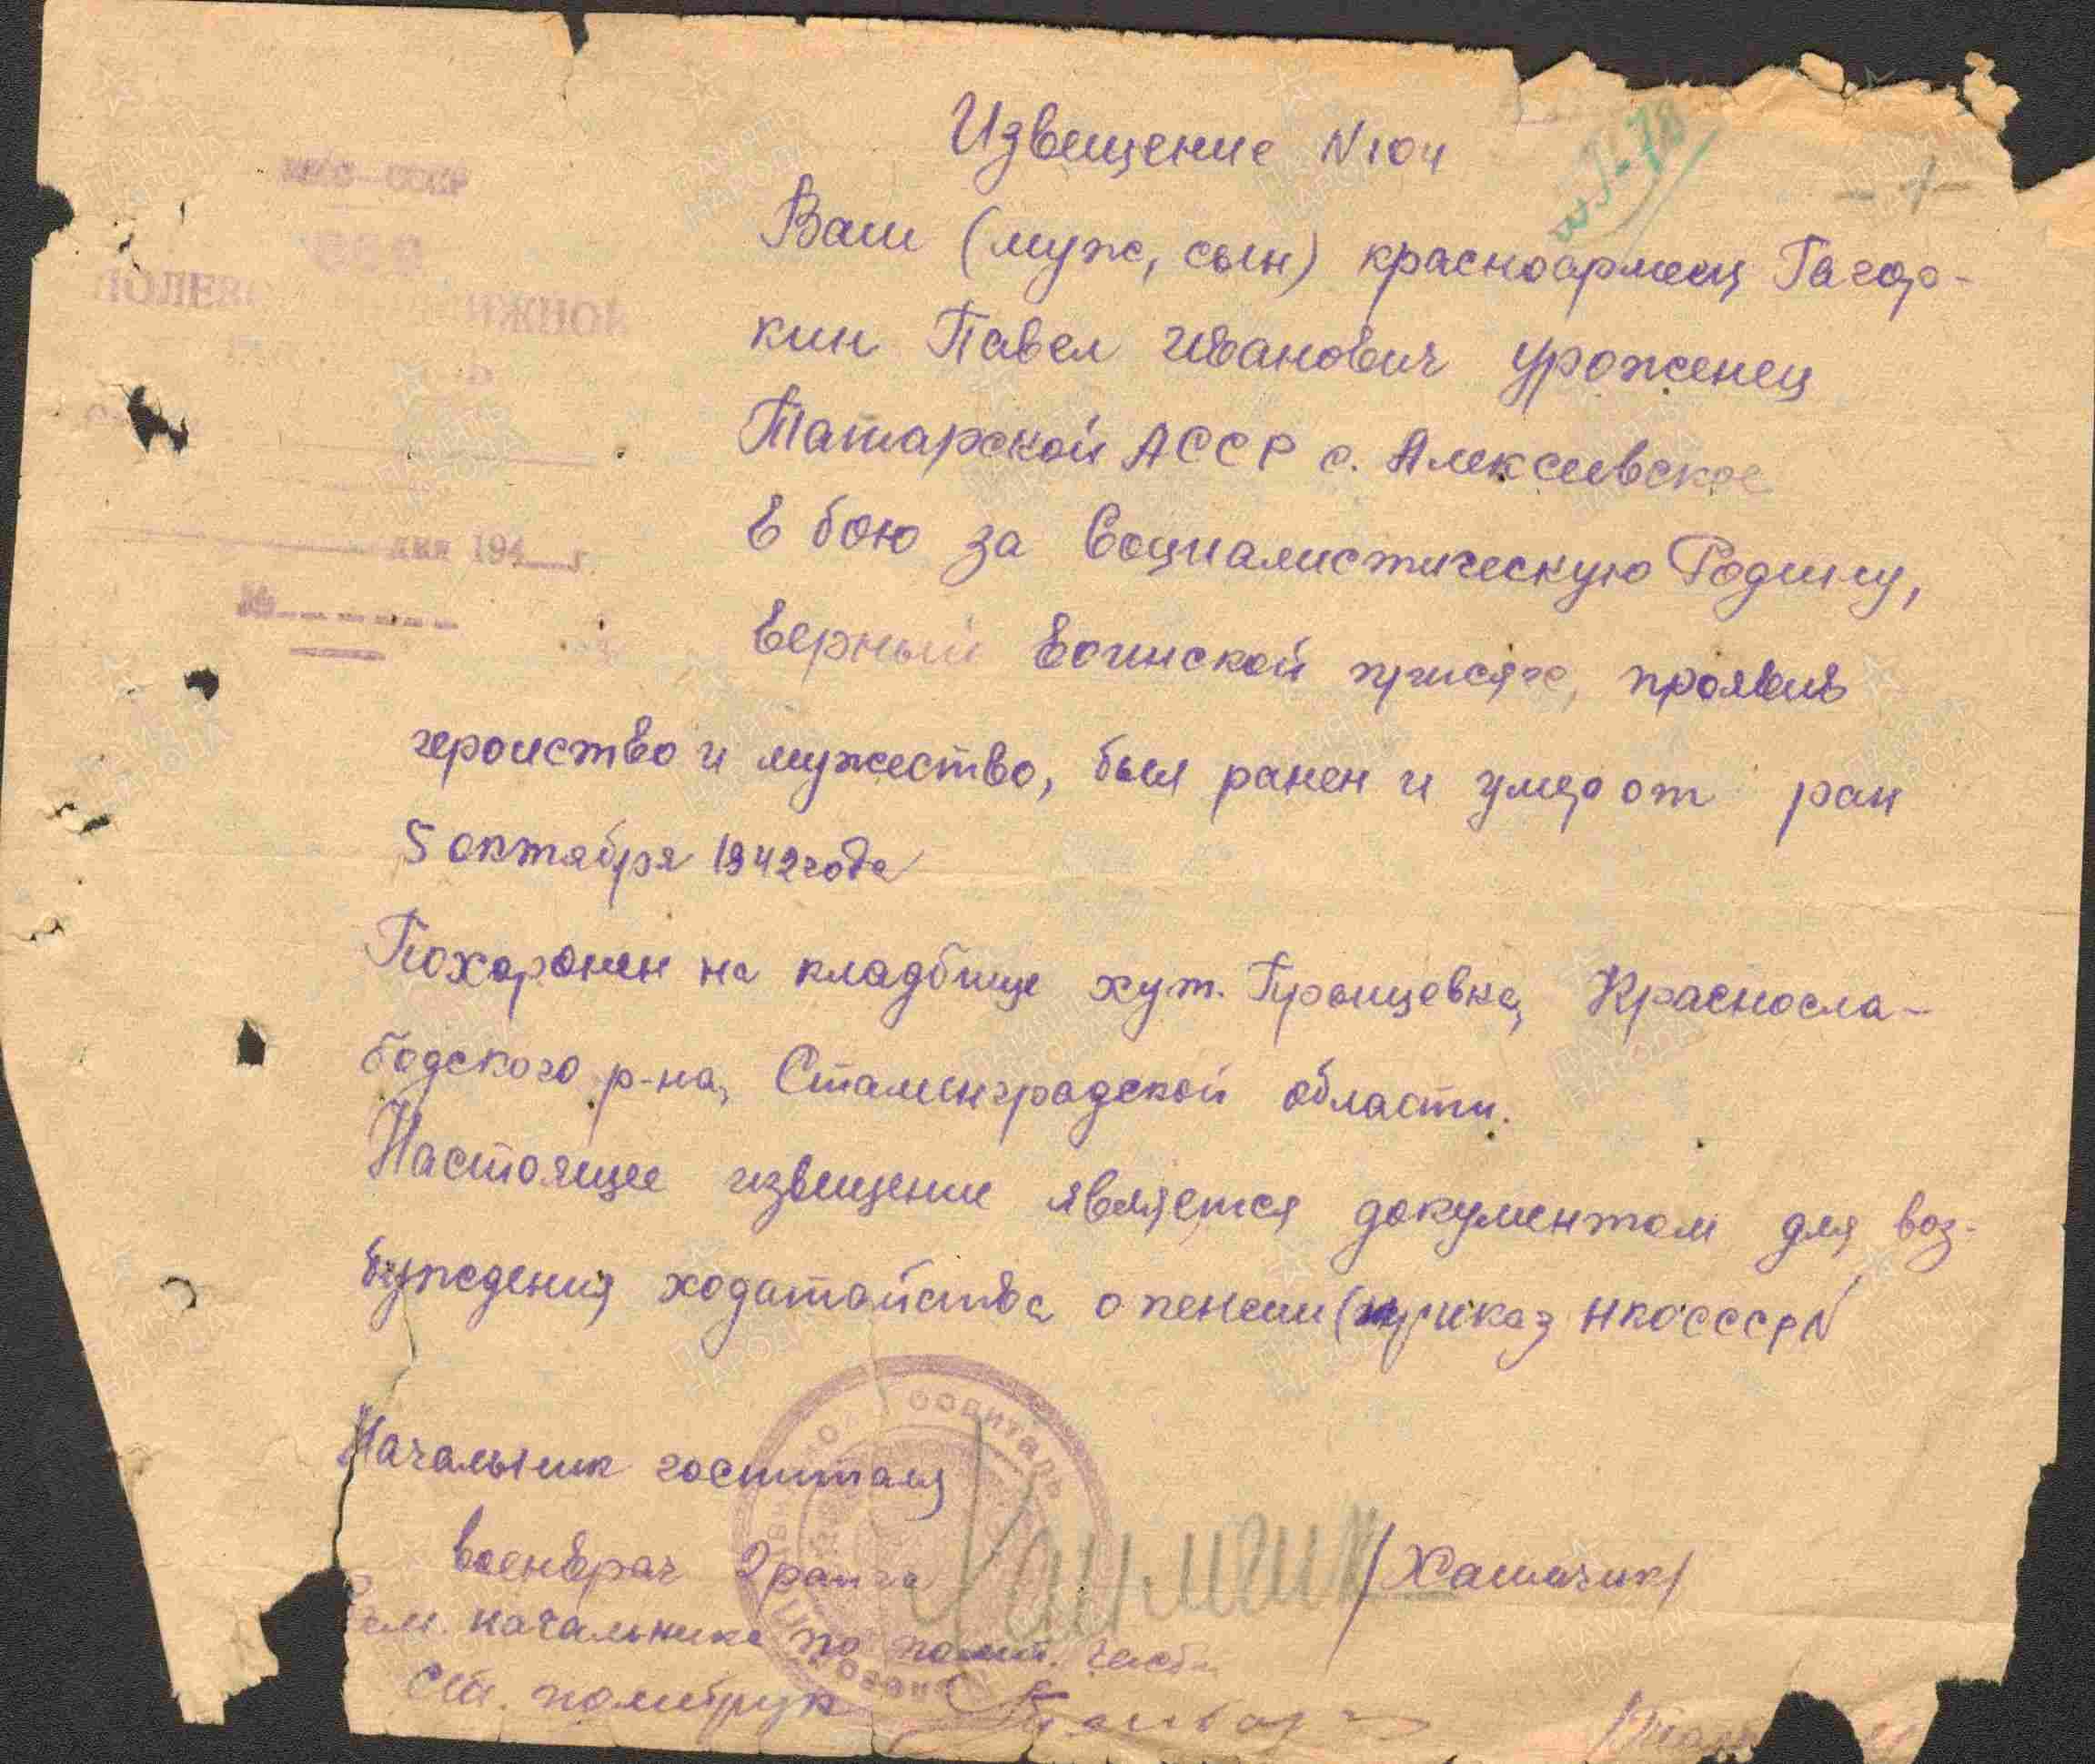 НКО–СССР
дня 194 г.
№
Извещение N104
Ваш (муж, сын) красноармеец Гагор-
кин Павел Иванович уроженец
Татарской АССР с. Алексеевское
в бою за Социалистическую Родину,
верный воинской присяге, проявив
героиство и мужество, был ранен и умер от ран
5 октября 1942 года
Похоронен на кладбище хут. Красносла-
бодского р-на, Сталинградской области.
Настоящее извещение является документом для воз-
буждения ходатайства о пенсии (приказ НКОСССР N
Начальник госпиталя
военврач 2 ранга /Хашмчик/
Зам. начальника по полит. части
Ст. политрук